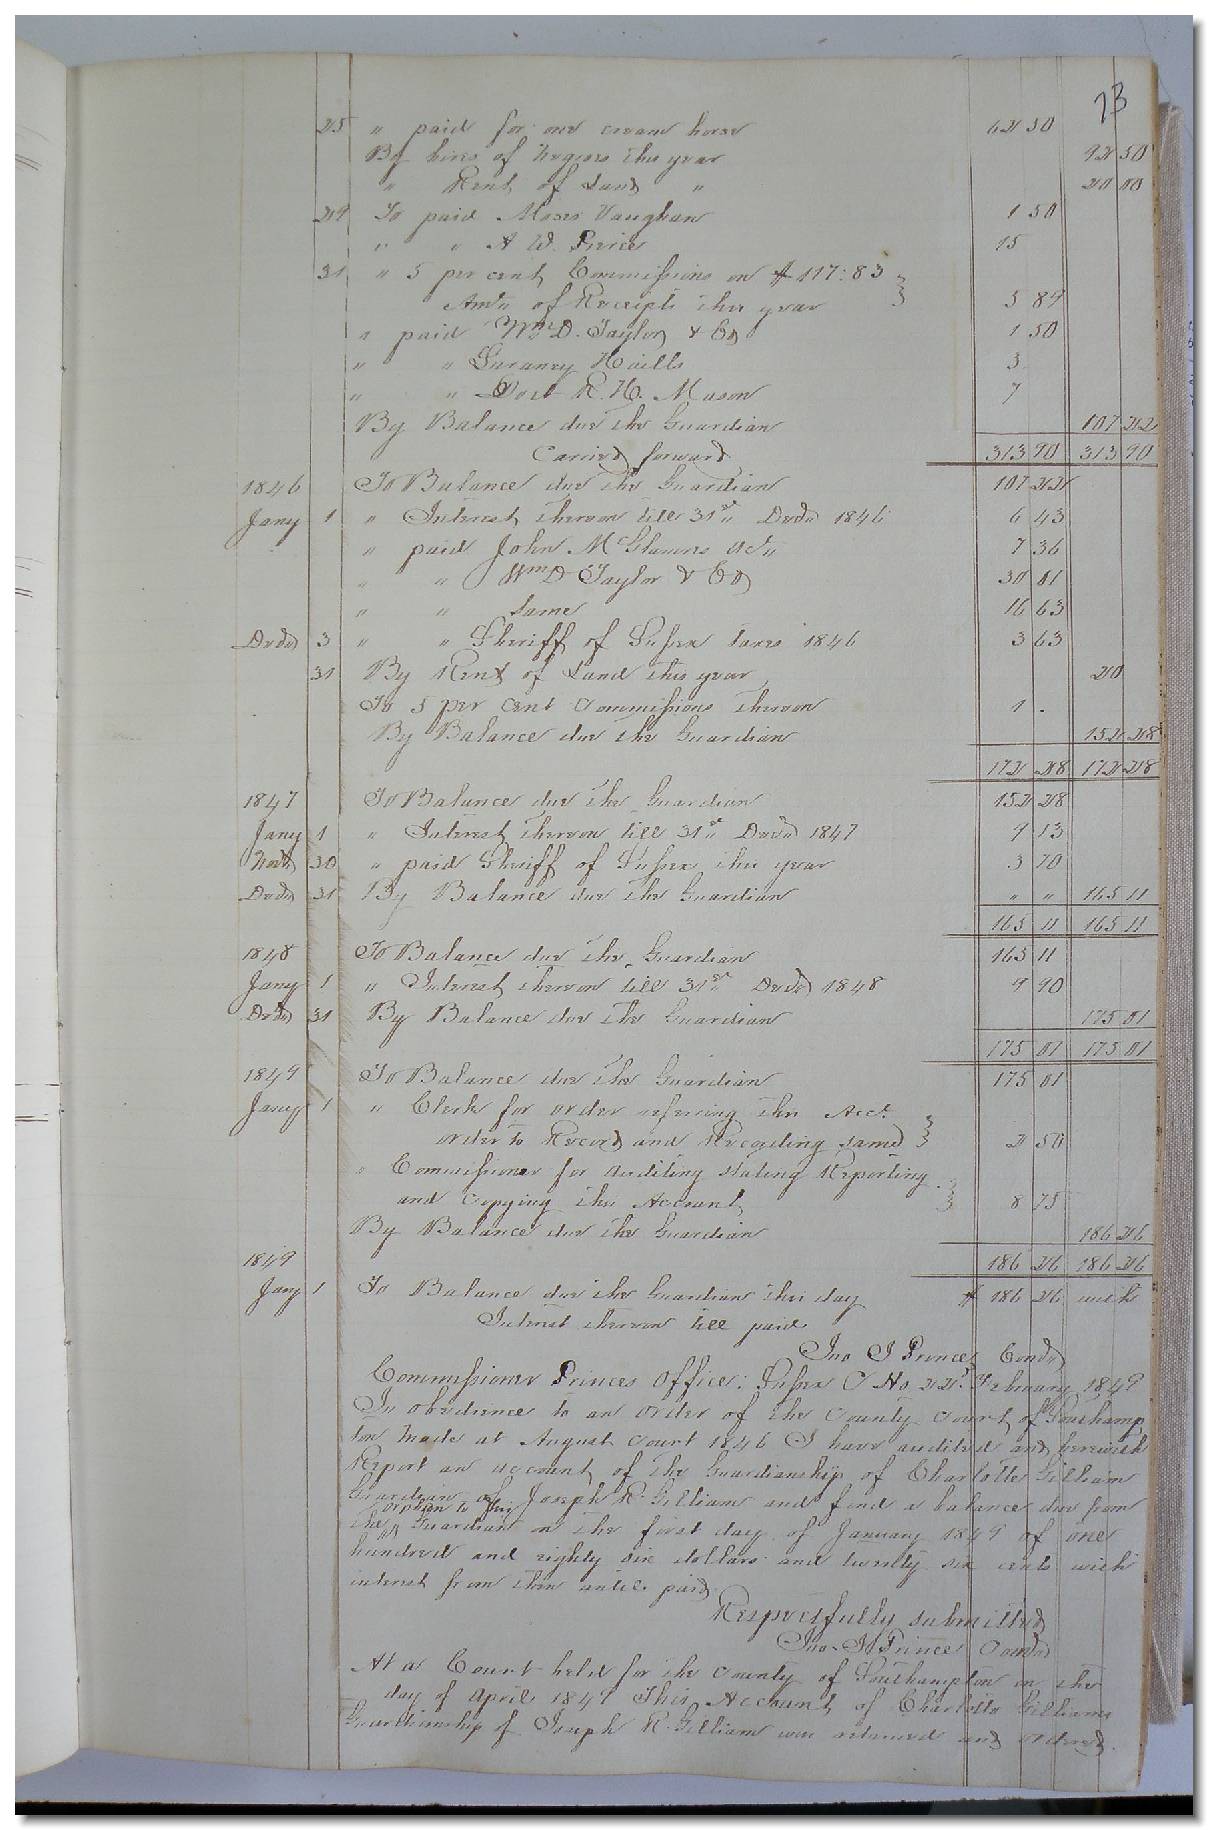 73
25 " paid for one cream horse 62 50
By hires of Negroes this year 92 50
" Rent of Land " 20 00
29 To paid Moses Vaughan 1 50
" " A W. Prince 15
31 " 5 per cent Commissions on $117:83
Amt" of Receipts this year 5 89
" paid Wm D. Taylor & Co 1 50
" " Gurancy 3
" " Doct R. H. Mason 7
By Balance due the Guardian 107 22
Carried forward 313 90 313 90
1846 To Balance due the Guardian 107 22
Jany 1 " Interest thereon till 31st Decr 1846 6 43
" paid John McGlamre Act" 7 36
" " Wm D Taylor & Co 30 01
" " same 16 63
Decr 3 " " Sheriff of Sussex taxes 1846 3 63
31 By Rent of Land this year 20
To 5 per cent Commissions thereon 1 .
By Balance due the Guardian 152 28
172 28 172 28
1847 To Balance due the Guardian 152 28
Jany 1 " Interest thereon till 31st Decr 1847 9 13
30 " paid Sheriff of Sussex this year 3 70
Decr 31 By Balance due the Guardian " " 165 11
165 11 165 11
1848 To Balance due the Guardian 165 11
Jany 1 " Interest thereon till 31st Decr 1848 9 90
Decr 31 By Balance due the Guardian 175 01
175 01 175 01
1849 To Balance due the Guardian 175 01
Jany 1 " Clerk for order referring this Acct.
order to Record and Recording same 2 50
" Commissioner for Auditing stating Reporting
and Copying this Account 8 75
By Balance due the Guardian 186 26
1849 186 26 186 26
Jany 1 To Balance due the Guardian this day $ 186 26 with
Interest thereon till paid
Jno J Prince Comr
Commissioner Princes Office: Sussex C Ho, 22d. February 1849
In obedience to an order of the County Court of Southamp
ton made at August Court 1846 I have audited and herewith
Report an account of the Guardianship of Charlotte Gilliam
Guardian of Joseph R. Gilliam and find a balance due from
orphan to his
the Guardian on the first day of January 1849 of one
hundred and eighty six dollars and twenty six cents with
interest from then until paid
Respectfully submitted
Jno. J Prince Comr
At a Court held for the County of Southampton on the
day of April 1849 This Account of Charlotte Gilliams
Guardianship of Joseph R. Gilliam was returned and ordered